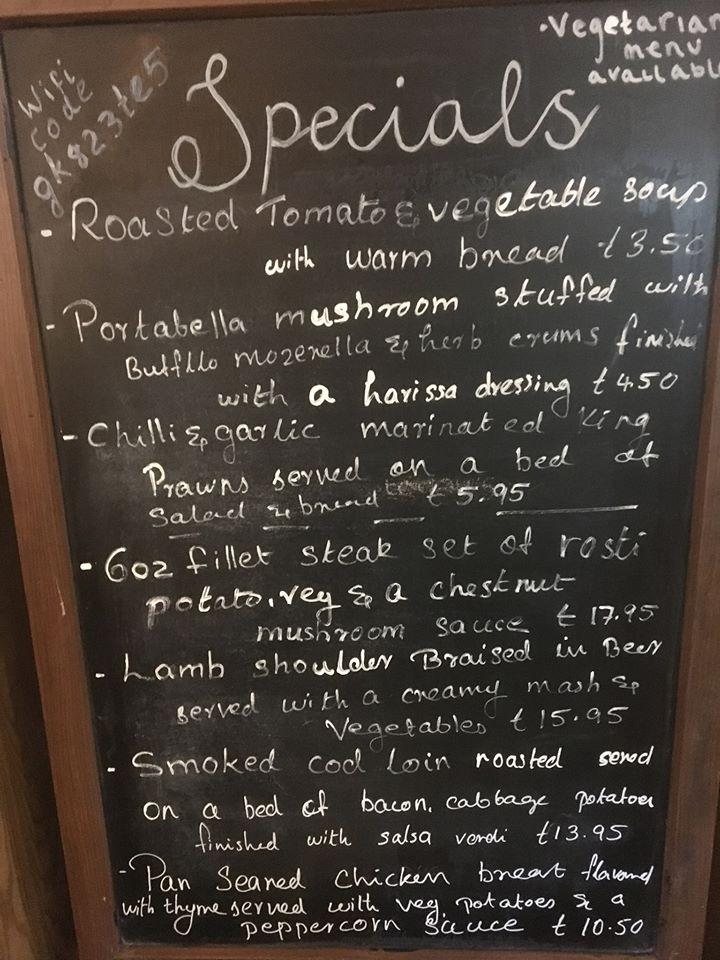 ·Vegetarian
menu
available
Wifi
code
gk823te5
Specials
- Roasted Tomato & vegetable soup
with warm bread £3.50
- Portabella mushroom stuffed with
Buffllo mozerella & herb crums finished
with a harissa dressing £4.50
- Chilli & garlic marinated King
Prawns served on a bed of
Salad & bread £5.95
- 6oz fillet steak set of rosti
potato, veg & a chestnut
mushroom sauce £17.95
- Lamb shoulder Braised in Beer
served with a creamy mash &
Vegetables £15.95
- Smoked cod loin roasted served
on a bed of bacon, cabbage potatoes
finished with salsa verdi £13.95
- Pan Seared Chicken breast flavoured
with thyme served with veg, potatoes & a
peppercorn sauce £10.50